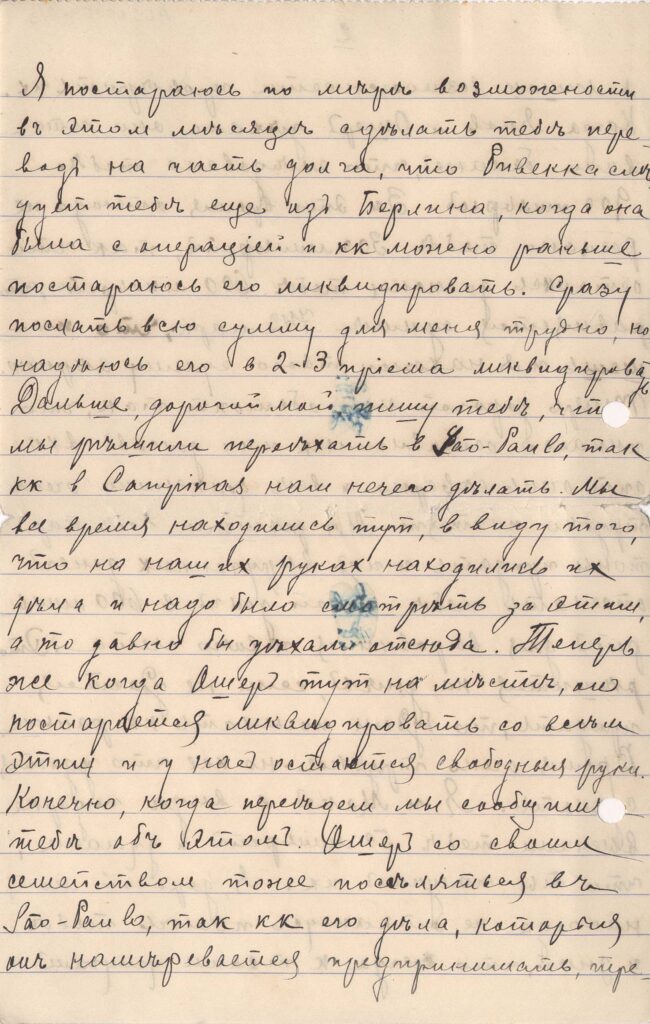 Я постараюсь по мѣрѣ возможности
въ этом мѣсяцѣ сдѣлать тебѣ пере
водъ на часть долга, что Ривекка слѣ
дует тебѣ еще одъ Берлина, когда она
была с операціей и кк можно раньше
постараюсь его ликвидировать. Сразу
послать всю сумму для меня трудно, но
надѣюсь его в 2-3 пріема ликвидировать
Дальше, дорогой мой, пишу тебѣ, что
мы рѣшили переѣхать в São-Paulo, так
кк в Campinas нам нечего дѣлать. Мы
все время находились тут, в виду того,
что на наших руках находились их
дѣла и надо было смотрѣть за этим,
а то давно бы уѣхали отсюда. Теперь
же когда Ошер тут на мѣстѣ, он
постарается ликвидировать со всѣм
этим и у нас остаются свободныя руки.
Конечно, когда переѣдем мы сообщим
тебѣ объ этомъ. Ошер со своим
семейством тоже поселяться въ
São-Paulo, так кк его дѣла, которыя
онъ намѣревается предпринимать, тре-